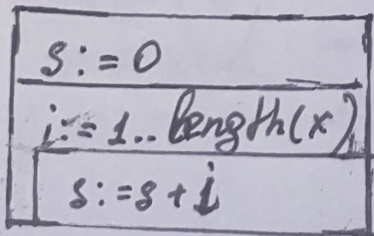 s:=0
i:=1..length(x)
s:=s+i